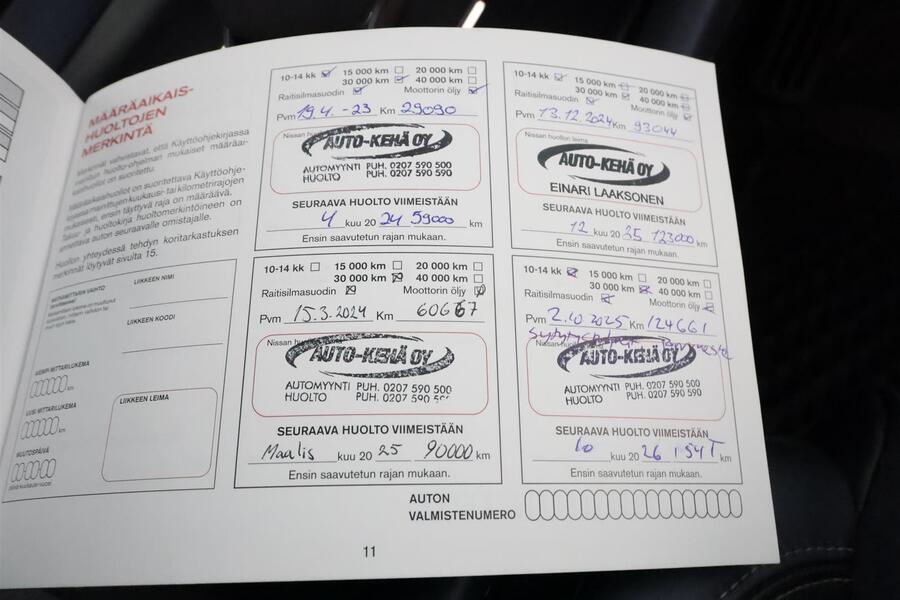 MÄÄRÄAIKAIS-
HUOLTOJEN
MERKINTÄ
Merkinnät vahvistavat, että Käyttöohjekirjassa
mainitun huolto-ohjelman mukaiset määräai-
kaishuollot on suoritettu.
Määräaikaishuollot on suoritettava Käyttöohje-
kirjassa mainittujen kuukausi- tai kilometrirajojen
mukaisesti, ensin täyttyvä raja on määräävä.
Takuu- ja huoltokirja huoltomerkintöineen on
annettava auton seuraavalle omistajalle.
Huollon yhteydessä tehdyn koritarkastuksen
merkinnät löytyvät sivulta 15.
MATKAMITTARIN VAIHTO
LIIKKEEN NIMI
LIIKKEEN KOODI
AIEMPI MITTARILUKEMA
km
UUSI MITTARILUKEMA
km
MUUTOSPÄIVÄ
LIIKKEEN LEIMA
10-14 kk 15 000 km 20 000 km
30 000 km 40 000 km
Raitisilmasuodin Moottorin öljy
Pvm 19.4.-23 Km 29090
Nissan huollon
AUTO-KEHÄ OY
AUTOMYYNTI PUH. 0207 590 500
HUOLTO PUH. 0207 590 590
SEURAAVA HUOLTO VIIMEISTÄÄN
4 kuu 20 24 59000 km
Ensin saavutetun rajan mukaan.
10-14 kk 15 000 km 20 000 km
30 000 km 40 000 km
Raitisilmasuodin Moottorin öljy
Pvm 13.12.2024 Km 93044
Nissan huollon leima
AUTO-KEHÄ OY
EINARI LAAKSONEN
SEURAAVA HUOLTO VIIMEISTÄÄN
12 kuu 20 25 123000 km
Ensin saavutetun rajan mukaan.
10-14 kk 15 000 km 20 000 km
30 000 km 40 000 km
Raitisilmasuodin Moottorin öljy
Pvm 15.3.2024 Km 60667
Nissan
AUTO-KEHÄ OY
AUTOMYYNTI PUH. 0207 590 500
HUOLTO PUH. 0207 590 590
SEURAAVA HUOLTO VIIMEISTÄÄN
Maalis kuu 20 25 90000 km
Ensin saavutetun rajan mukaan.
10-14 kk 15 000 km 20 000 km
30 000 km 40 000 km
Raitisilmasuodin Moottorin öljy
Pvm 2.10 2025 Km 124661
Nissan
AUTO-KEHÄ OY
AUTOMYYNTI PUH. 0207 590 500
HUOLTO PUH. 0207 590 590
SEURAAVA HUOLTO VIIMEISTÄÄN
10 kuu 20 26 154T km
Ensin saavutetun rajan mukaan.
AUTON
VALMISTENUMERO
11